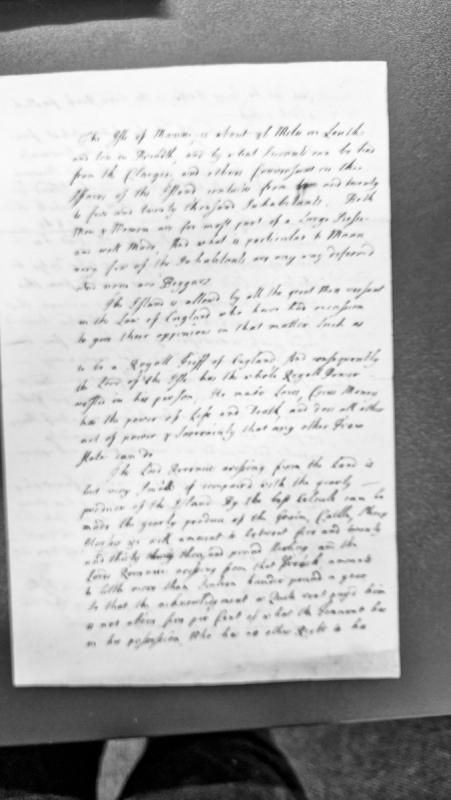 The Isle of Mann is about 30 Miles in Lenth
and ten in Breadth, and by what Accounts can be had
from the Clergie, and others Conversant in the
affaires of the Island contains from and twenty
to five and twenty thousand Inhabitants. Both
Men & Women are for most part of a Large Size
are well Made, And what is particular to Mann
very few of the Inhabitants are any way deformed
and none are Beggars
The Island is allowd by all the great Men versant
in the Law of England who have had occasion
to give there oppinion in that matter Such as
to be a Royall Fieff of England And consequently
the Lord of the Isle has the whole Regall Power
vested in his person. He makes Laws, Coins Money
has the power of Life and Death, and does all other
act of power & Soverainty that any other Free
State can do
The Lord Revenue arrising from the Land is
but very Small if compared with the yearly
produce of the Island By the best Calcule can be
made the yearly produce of the Grain, Cattle, Sheep
amount to betwixt five and twenty
and thirty thousand pound Sterling and the
Lords Revenue arrising from that amounts
to little more than hunder pound a year
So that the acknowledgement or Quite rent payd him
is not above five per Cent of what the Tennant has
in his possession, Who has no other Right to he